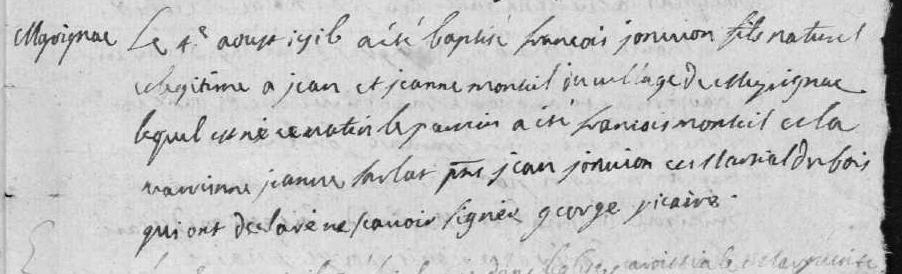 Meyvignac Le 4e aoust 171b a été baptisé francois jonvion fils naturel
et legitime a jean et jeanne monteil du village de Meyvignac
lequel est né ce matin le parrin a été francois monteil et la
marrinne jeanne sarlat pnt jean jonvion et Martial dubois
qui ont declaré ne scavoir signer george vicaire.